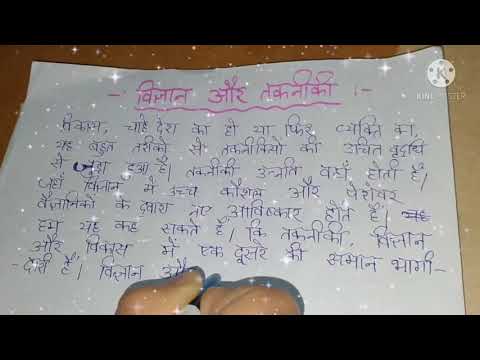 -: विज्ञान और तकनीकी :-
विकास, चाहे देश का हो या फिर व्यक्ति का,
यह बहुत तरीकों से तकनीकियों की उचित वृद्धि
से जुड़ा हुआ है। तकनीकी उन्नति वहाँ होती है।
जहाँ विज्ञान में उच्च कौशल और पेशेवर
वैज्ञानिकों के द्वारा नए आविष्कार होते हैं।
हम यह कह सकते हैं। कि तकनीकी, विज्ञान
और विकास में एक दूसरे की समान भागी-
-दारी है। विज्ञान और
KINEMASTER